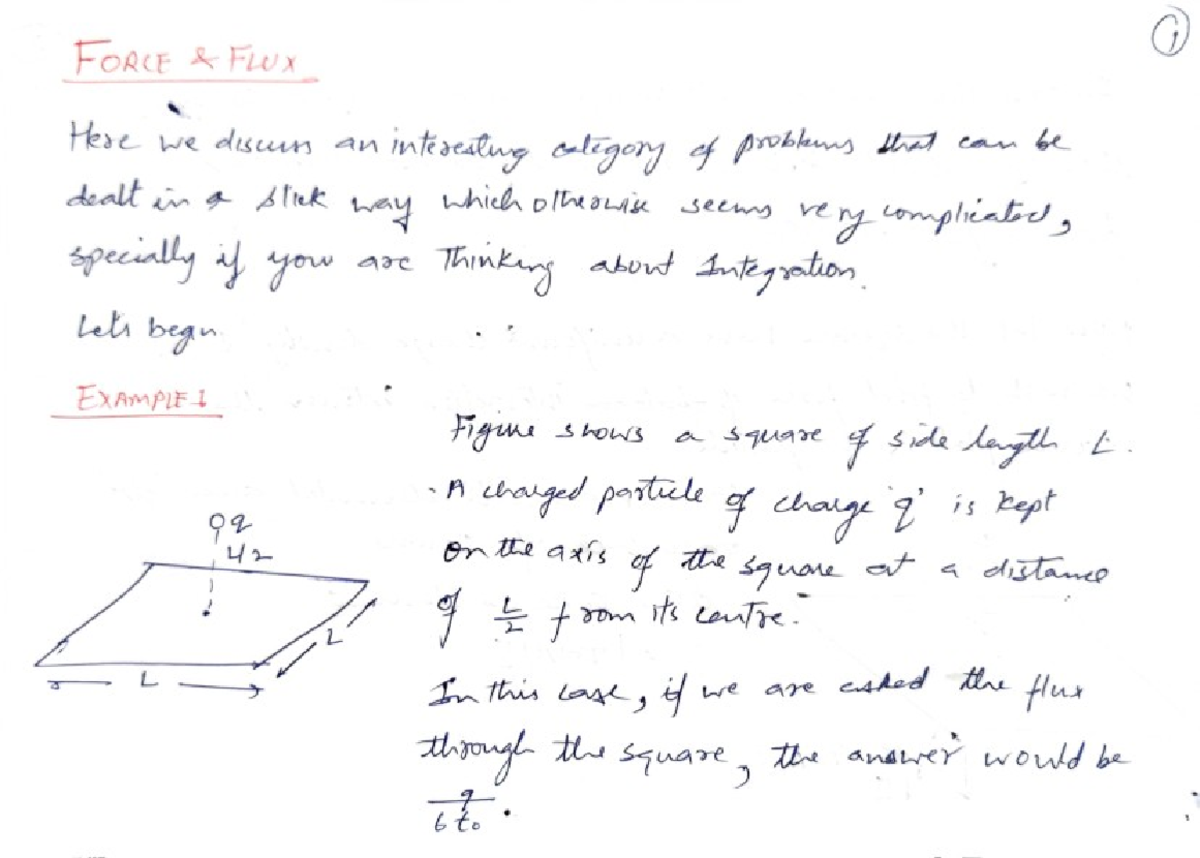 ①
FORCE & FLUX
Here we discuss an interesting category of problems that can be
dealt in a slick way which otherwise seems very complicated,
specially if you are Thinking about Integration.
Lets begin.
EXAMPLE 1
Figure shows a square of side length L.
A charged particle of charge 'q' is kept
on the axis of the square at a distance
of L/2 from its centre.
q
L/2
L
L
In this case, if we are asked the flux
through the square, the answer would be
q/6ε₀.